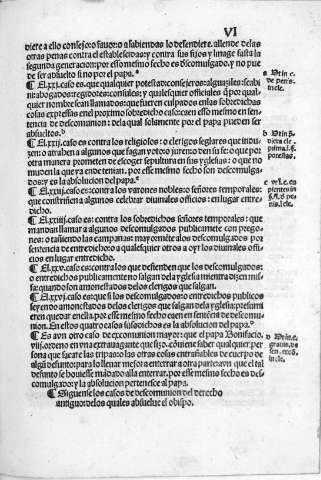 VI
diere a ello consejo: o fauor: o a sabiendas lo defendiere. allende delas
otras penas contra el establescidas: y contra sus fijos y linage fasta la
segunda generacion: por esso mesmo fecho es descomulgado. y no pue
de ser absuelto sino por el papa.ᵃ
¶ El.xxj.caso es: que qualquier potestad: consejeros: alguaziles: scriua
ni: abogados: regidores: consules: y qualesquier officiales q̃ por qual
quier nombre sean llamados: que fueren culpados enlas sobredichas
colas expressas enel proximo sobredicho caso: caen esso mesmo en sen
tencia de descomunion: dela qual solamente por el papa pueden ser
absueltos.ᵇ
¶ El.xxij.caso es contra los religiosos: o clerigos seglares que induz
zen: o atraben a algunos que fagan voto: o juren: o den su fe: o que por
otra manera prometen de escoger sepultura en sus yglesias: o que no
muden la que ya ende tenian. por esse mesmo fecho son descomulga
dos: y es la absolucion del papa.ᶜ
¶ El.xxiij.caso es: contra los varones nobles: o señores temporales:
que constriñen a algunos celebrar diuinales officios: en lugar entre
dicho.
¶ El.xxiiij.caso es: contra los sobredichos señores temporales: que
mandan llamar a algunos descomulgados publicamente con prego
nes: o tañiendo las campanas: mayormẽte alos descomulgados por
sentencia de entredicho: o a qualesquier otros a oyr los diuinales offi
cios en lugar entredicho.
¶ El.xxv.caso es: contra los que defienden que los descomulgados:
o entredichos publicamente no salgan dela yglesia mientra dizen mis
sa: quando son amonestados delos clerigos que salgan.
¶ El.xxvj.caso es: que si los descomulgados: o entredichos publicos
seyendo amonestados delos clerigos que salgan dela yglesia: presumi
eren quedar enella: por esse mesmo fecho caen en sentẽcia de descomu
nion. En estos quatro casos susodichos es la absolucion del papa.ᵈ
¶ Es avn otro caso de descomunion mayor: que el papa Bonifacio.
viij. ordeno en vna extrauagante que fizo. cõuiene saber qualquier per
sona que sacare las tripas: o las otras cosas entrañables de cuerpo de
algũ defunto: para lo lleuar mejor a enterrar a otra parte: avn que el tal
defunto se houiesse mãdado alla enterrar. por esse mesmo fecho es des
comulgado: y la absolucion pertenesce al papa.
¶ Siguense los casos de descomunion del derecho
antiguo: delos quales absuelue el obispo.